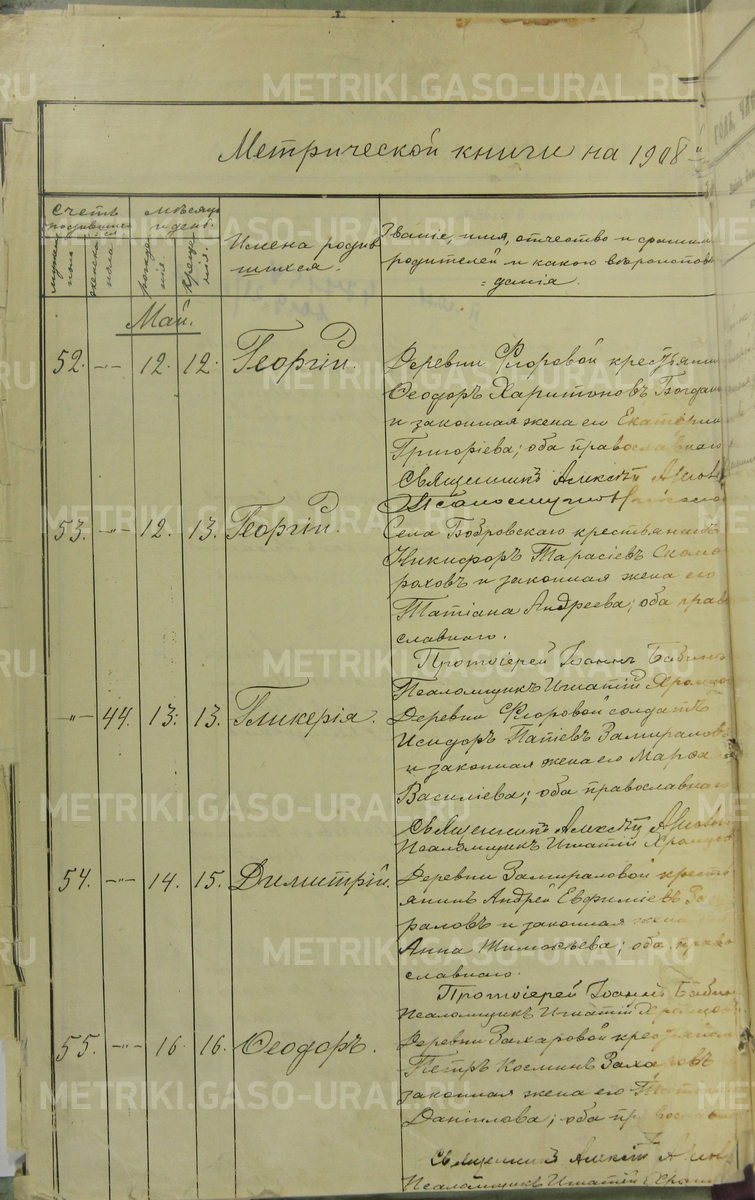 METRIKI.GASO-URAL.RU
Метрической книги на 1908 й
Счетъ
родившихся
Мѣсяцъ
и день.
мужска
пола
женска
пола
рожде
нія
креще
нія.
Имена родив
шихся.
Званіе, имя, отчество и фамилія
родителей и какого вѣроиспов
= данія.
Май.
52. —"— 12. 12. Георгій.
Деревни Ѳлоровой крестьянин
Ѳеодоръ Харитоновъ Богдан
и законная жена его Екатерин
Григоріева; оба православнаго
Священникъ Алексѣй
53. —"— 12. 13. Георгій.
Села Бобровскаго крестьянинъ
Никифоръ Тарасіевъ Скомо
роховъ и законная жена его
Татіана Андреева; оба право
славнаго.
Протоіерей Іоаннъ Бабинъ
Псаломщикъ Игнатій Хромцов
—"— 44. 13. 13. Гликерія.
Деревни Ѳлоровой солдатъ
Исидоръ Патіевъ Замиралов
и законная жена его Марѳа
Василіева; оба православнаго
Священникъ Алексѣй
Псаломщикъ Игнатій Хромцов
54. —"— 14. 15. Димитрій.
Деревни Замираловой кресть
янинъ Андрей Евфиміевъ За
раловъ и законная жена его
Анна Тимоѳѣева; оба право
славнаго.
Протоіерей Іоаннъ Бабин
Псаломщикъ Игнатій Хромцов
55. —"— 16. 16. Ѳеодоръ.
Деревни Захаровой крестьянин
Петръ Косминъ Захаровъ
законная жена его
Даніилова; оба православн
Священникъ Алексѣй
Псаломщикъ Игнатій Хром